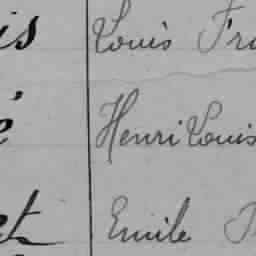 is Louis Fra
é Henri Louis
et Emile